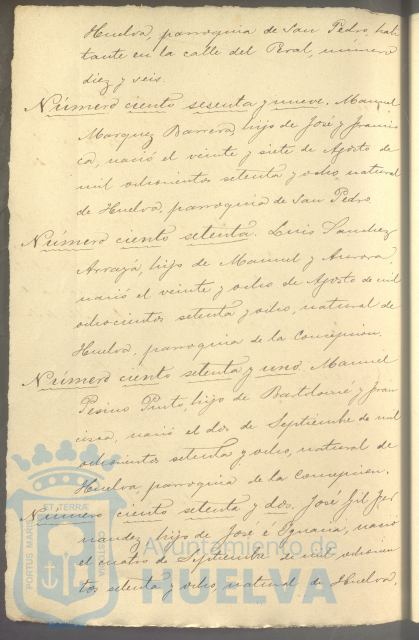 Huelva, parroquia de San Pedro, habi
tante en la calle del Peral, número
diez y seis.
Número ciento sesenta y nueve. Manuel
Marquez Barrera, hijo de José y Francis
ca, nació el veinte y siete de Agosto de
mil ochocientos setenta y ocho, natural
de Huelva, parroquia de San Pedro.
Número ciento setenta. Luis Sanchez
Arrayá, hijo de Manuel y Aurora,
nació el veinte y ocho de Agosto de mil
ochocientos setenta y ocho, natural de
Huelva, parroquia de la Concepcion.
Número ciento setenta y uno. Manuel
Pinto, hijo de Bartolomé y Fran
cisca, nació el dos de Septiembre de mil
ochocientos setenta y ocho, natural de
Huelva, parroquia de la Concepcion.
Número ciento setenta y dos. José Gil Fer
nandez, hijo de José é Ignacia, nació
el cuatro de Septiembre de mil ochocien
tos setenta y ocho, natural de Huelva,
PORTUS MARIS
ET TERRAE
CUSTODIA
Ayuntamiento de
HUELVA